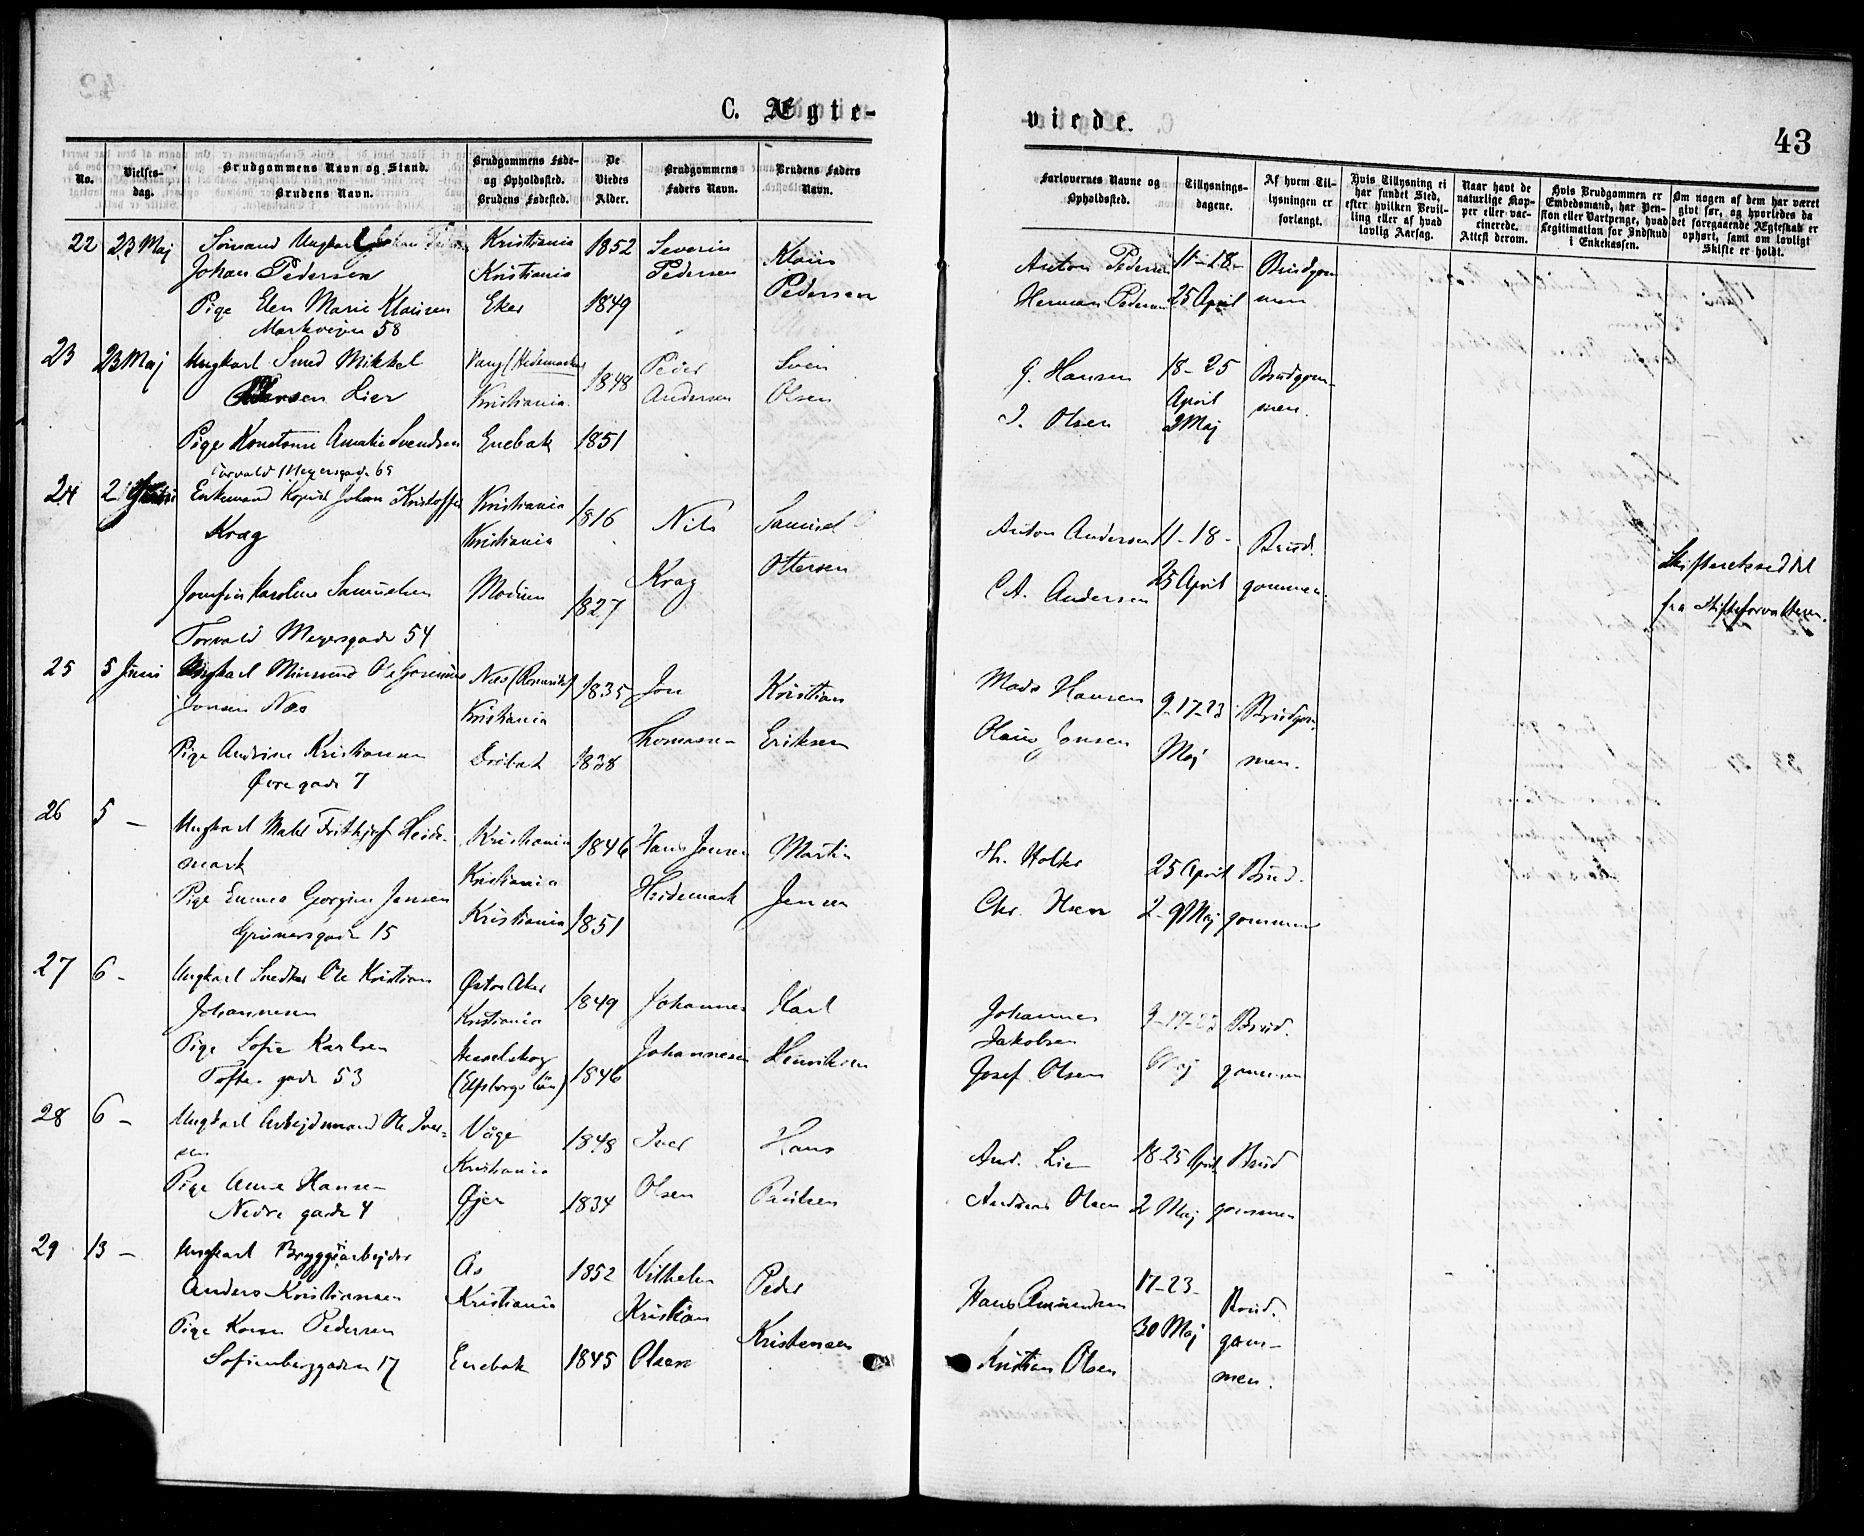 C. Ægte-
viede.
43
No.
Vielses-dag.
Brudgommens Navn og Stand.
Brudens Navn.
Brudgommens Føde- og Opholdssted.
Brudens Fødested.
De Viedes Alder.
Brudgommens Faders Navn.
Brudens Faders Navn.
Forlovernes Navne og Opholdssted.
Tillysnings-dagene.
Af hvem Til-lysningen er forlangt.
Hvis Tillysning ei har fundet Sted, efter hvilken Bevil-ling eller af hvad lovlig Aarsag.
Naar havt de naturlige Kop-per eller vac-cinerede. Attest derom.
Hvis Brudgommen er Embedsmand, har Pen-sion eller Vartpenge, hvad Legitimation for Indskud i Enkekassen.
Om nogen af dem har været givt før, og hvorledes da det foregaaende Ægteskab er ophørt, samt om lovligt Skifte er holdt.
22 23 Maj Sömand Ungkarl
Johan Pedersen
Pige Elen Marie Klausen
Markvejen 58
Kristiania
Kristiania
Eker
1852
1849
Severin Pedersen
Klaus Pedersen
Anton Pedersen
Herman Pedersen
11-18-
25 April
Brudgom
men
23 23 Maj Ungkarl Smed Mikkel
Pedersen Lier
Pige Konstanse Amalie Svendsen
Torvald Meyersgade 65
Vang (Hedemarken)
Kristiania
Enebak
1848
1851
Peder Andersen
Sven Olsen
G. Hansen
I. Olsen
18-25
April
2 Maj
Brudgom-
men.
24 2 Enkemand Kopist Johan Kristoffer
Krag
Josefine Karoline Samuelsen
Torvald Meyersgade 54
Kristiania
Kristiania
Modum
1816
1827
Nils Krag
Samuel Ottersen
Anton Andersen
C.A. Andersen
11-18-
25 April
Brud
gommen.
Skifteretsseddel
fra Skifteforvalteren.
25 5 Juni Ungkarl Minerund Ole
Jonsen Næs
Pige Andrine Kristiansen
Övregade 7
Næs (Romerike)
Kristiania
Dröbak
1835
1828
Jon Thomassen
Kristian Eriksen
Mads Hansen
Olaus Jonsen
9-17-23
Maj
Brudgom-
men.
26 5 - Ungkarl Maler Frithjof Heide-
mark
Pige Emma Georgine Jensen
Grünersgade 15
Kristiania
Kristiania
Kristiania
1846
1851
Hans Jensen Heidemark
Martin Jensen
Th. Holter
Chr.
25 April
2-9 Maj
Brud-
gommen
27 6 - Ungkarl Snedker Ole Kristian
Johannesen
Pige Sofie Karlsen
Toftes gade 53
Østre Aker
Kristiania
(Elfsborgs län)
1849
1846
Johannes Johannesen
Karl Henriksen
Johannes
Jakobsen
Josef Olsen
9-17-23
Maj
Brud-
gommen
28 6 - Ungkarl Arbejdsmand Ole Iver-
sen
Pige Anne Hansen
Nedre gade 4
Våge
Kristiania
Øjer
1848
1834
Iver Olsen
Hans Paulsen
And. Lie
Andreas Olsen
18-25 April
2 Maj
Brud
gommen
29 13 - Ungkarl Bryggeriarbejder
Anders Kristiansen
Pige Karen Pedersen
Sofienberggaden 17
Ås
Kristiania
Enebak
1852
1845
Vilhelm Kristian Olsen
Peder Kristensen
Hans Amundsen
Kristian Olsen
17-23-
30 Maj
Brud-
gom-
men.